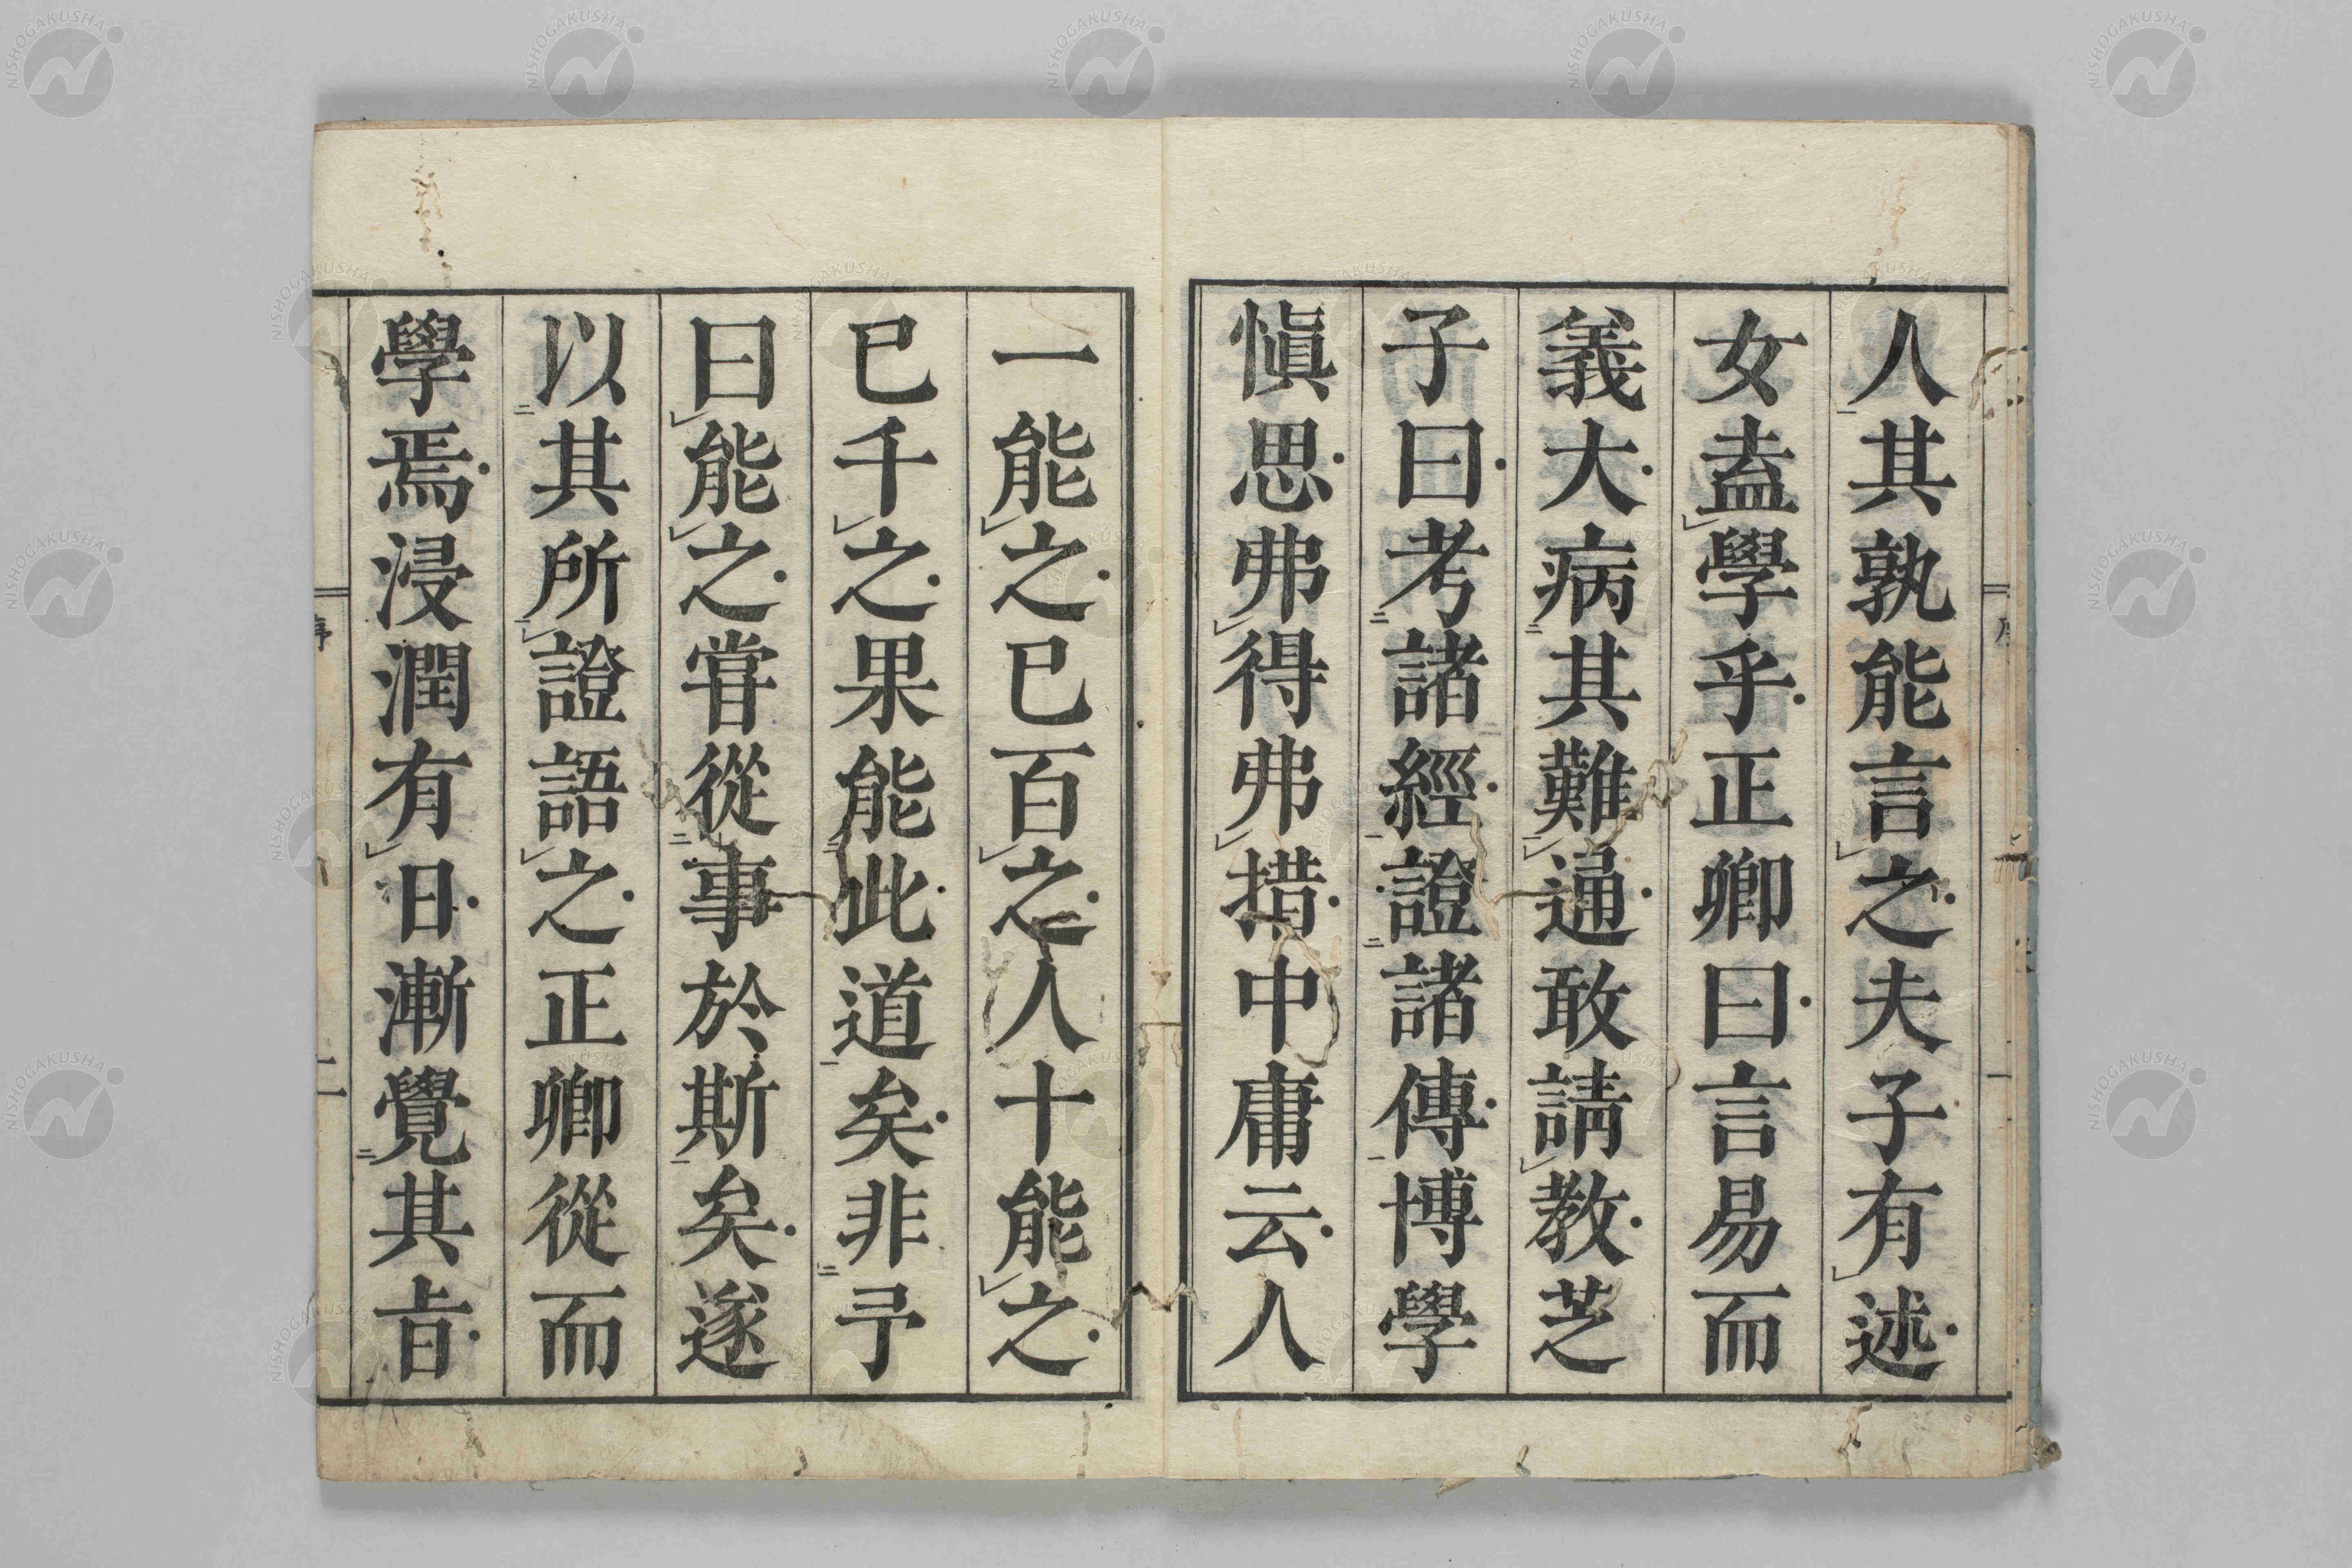 人其孰能言之夫子有述
女盍學乎正卿曰言易而
義大病其難通敢請教芝
子曰考諸經證諸傳博學
愼思弗得弗措中庸云人
一能之已百之人十能之
已千之果能此道矣非予
曰能之嘗從事於斯矣遂
以其所證語之正卿從而
學焉浸潤有日漸覺其旨
二
NISHOGAKUSHA